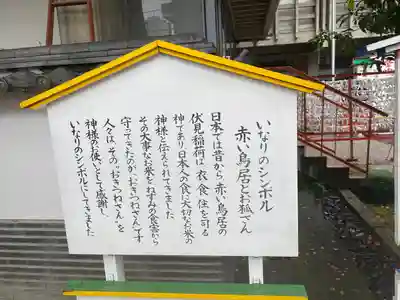 いなりのシンボル
赤い鳥居とお狐さん
日本では昔から赤い鳥居の
伏見稲荷は衣、食、住を司る
神であり日本人の食に大切なお米の
神様と伝えられてきました
その大事なお米をねずみの食害から
守ってきたのが〝おきつねさん〟です
人々は、その〝おきつねさん〟を
神様のお使いとして感謝し
いなりのシンボルにしてきました